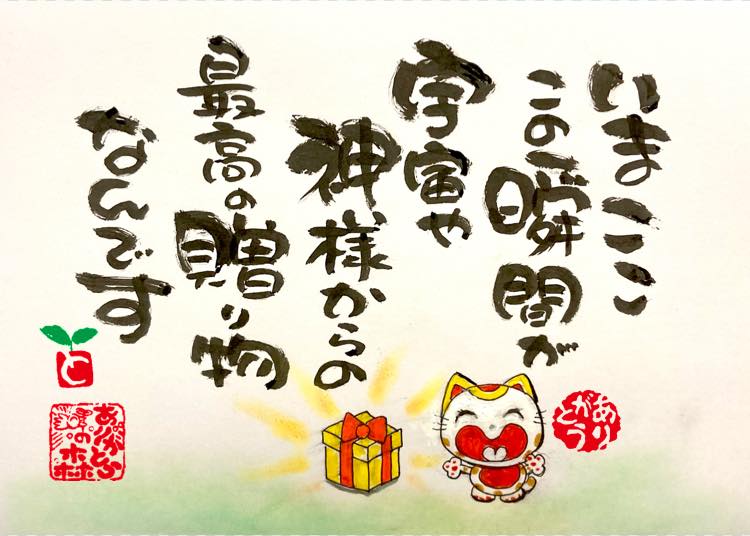 いまここ
この瞬間が
宇宙や
神様からの
最高の贈り物
なんです
ありがとう